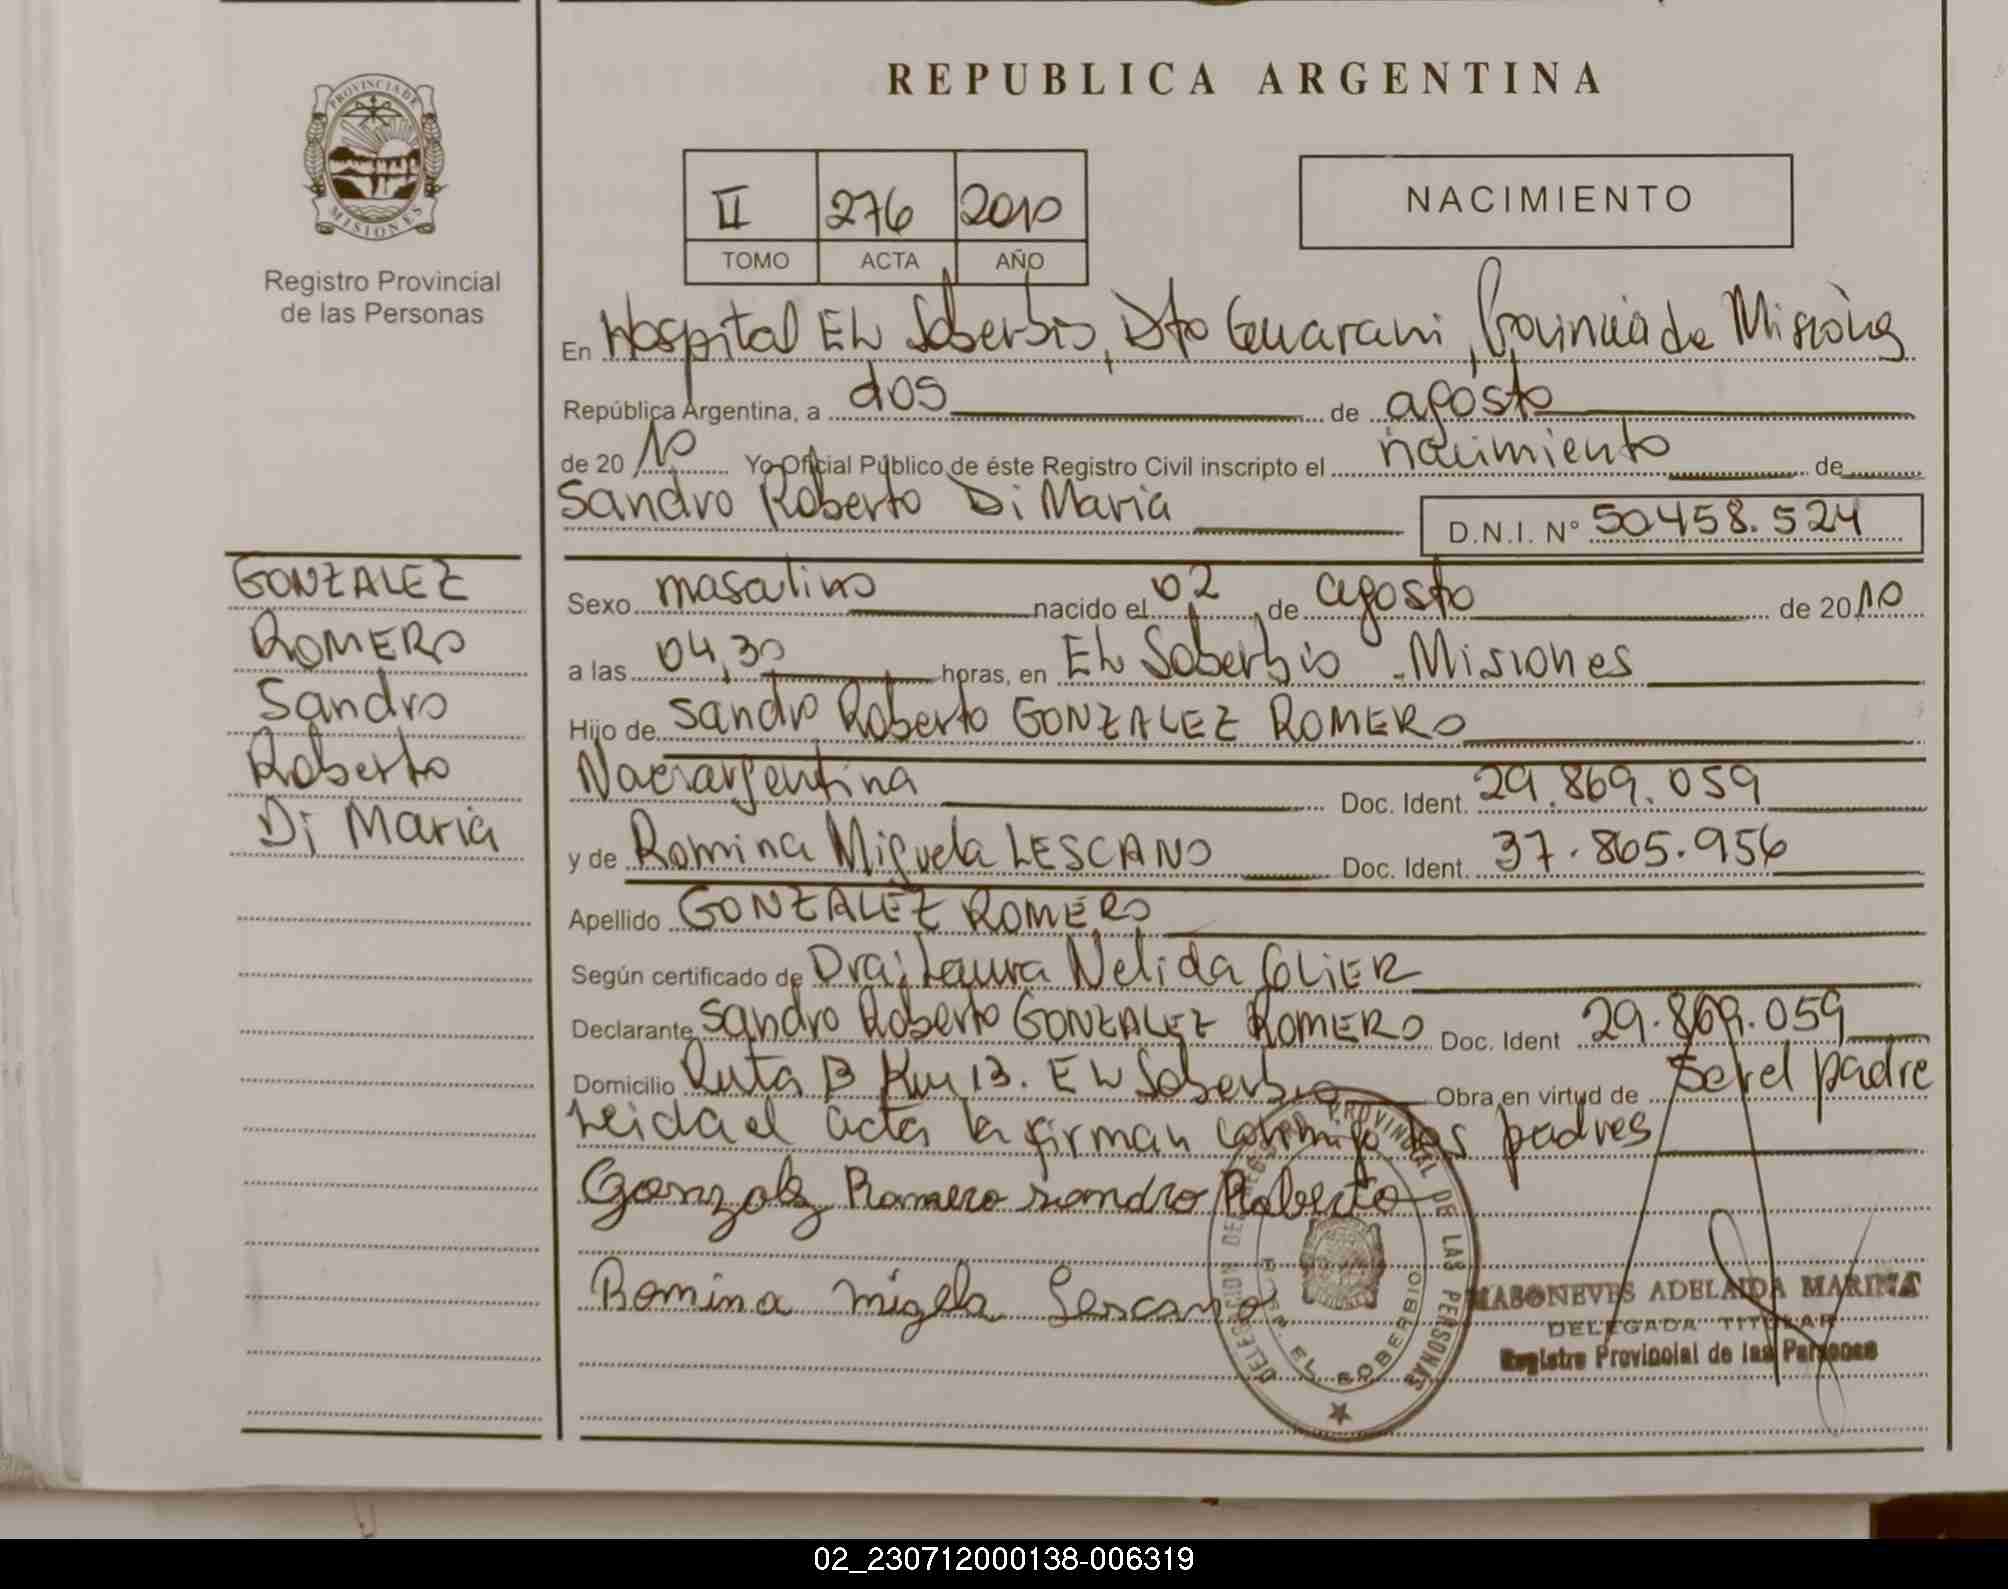 REPUBLICA ARGENTINA
PROVINCIA DE
MISIONES
Registro Provincial
de las Personas
II 276 2010
TOMO ACTA AÑO
NACIMIENTO
En Hospital EL Soberbio, Dto Guarani, Provincia de Misiones
República Argentina, a dos de agosto
de 2010 Yo Oficial Público de éste Registro Civil inscripto el nacimiento de
Sandro Roberto Di Maria D.N.I. N° 50.458.524
GONZALEZ
ROMERO
Sandro
Roberto
Di Maria
Sexo masculino nacido el 02 de agosto de 2010
a las 04,30 horas, en EL Soberbio - Misiones
Hijo de Sandro Roberto GONZALEZ ROMERO
Nac. argentina Doc. Ident. 29.869.059
y de Romina Miguela LESCANO Doc. Ident. 37.865.956
Apellido GONZALEZ ROMERO
Según certificado de Dra; Laura Nelida OLIER
Declarante Sandro Roberto GONZALEZ ROMERO Doc. Ident 29.869.059
Domicilio Ruta 13 Km 13. EL Soberbio Obra en virtud de ser el padre
Leida el acta la firman conmigo los padres
Gonzalez Romero sandro Roberto
Romina migela Lescano
DELEGACION DEL REGISTRO PROVINCIAL DE LAS PERSONAS
EL SOBERBIO
MASONEVES ADELAIDA MARINA
DELEGADA TITULAR
Registro Provincial de las Personas
02_230712000138-006319